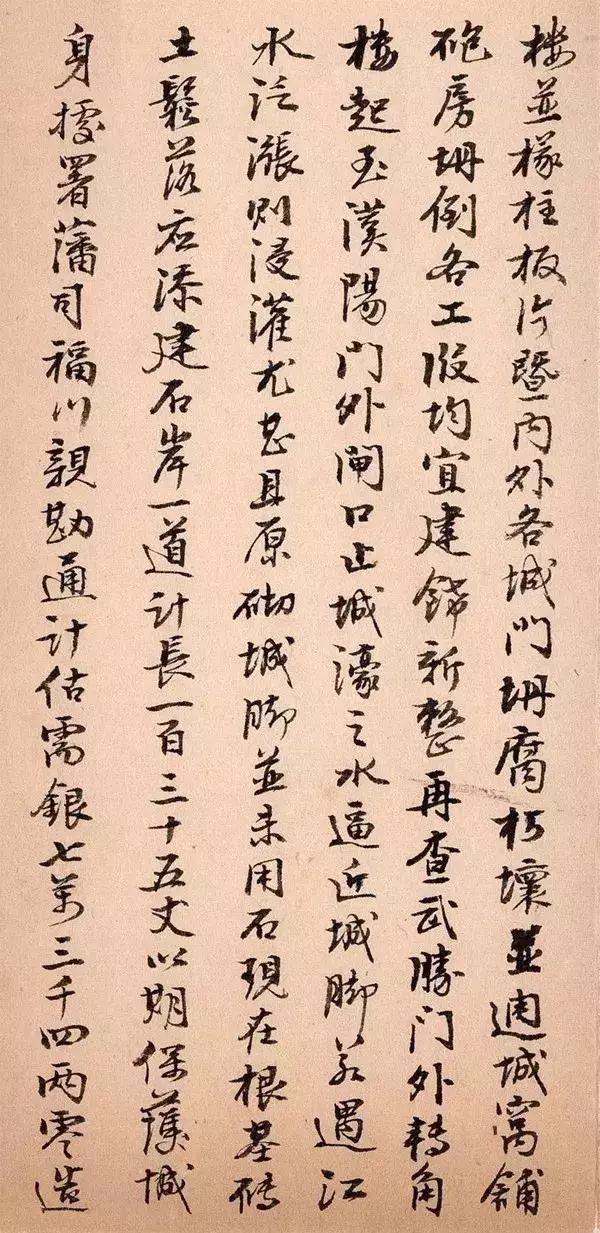 樓並椽柱板片暨內外各城門坍腐朽壞並週城窩鋪
砲房坍倒各工段均宜建錺新整再查武勝門外轉角
樓起至漢陽門外閘口止城濠之水逼近城脚若遇江
水泛漲則浸灌尤甚且原砌城脚並未用石現在根基磚
土鬆落应添建石岸一道計長一百三十五丈以期保護城
身據署藩司福川親勘通計估需銀七萬三千四两零造